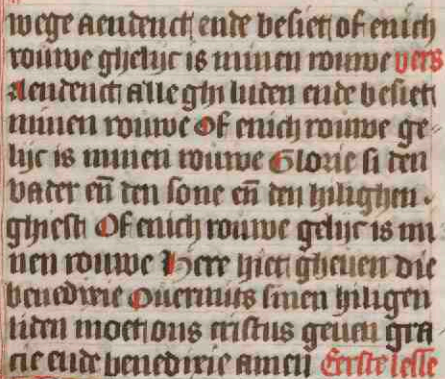 wege aendenct ende besiet of enich
rouwe ghelijc is minen rouwe vers
Aendenct alle ghi luden ende besiet
minen rouwe Of enich rouwe ge-
lijc is minen rouwe Glorie si den
vader en̄ den sone en̄ den hilighen
ghiest Of enich rouwe gelijc is mi
nen rouwe Here hiet gheuen die
benedixie Ouermits sinen hiligen
liden moet ons cristus geuen gra
cie ende benedixie amen Eerste lesse